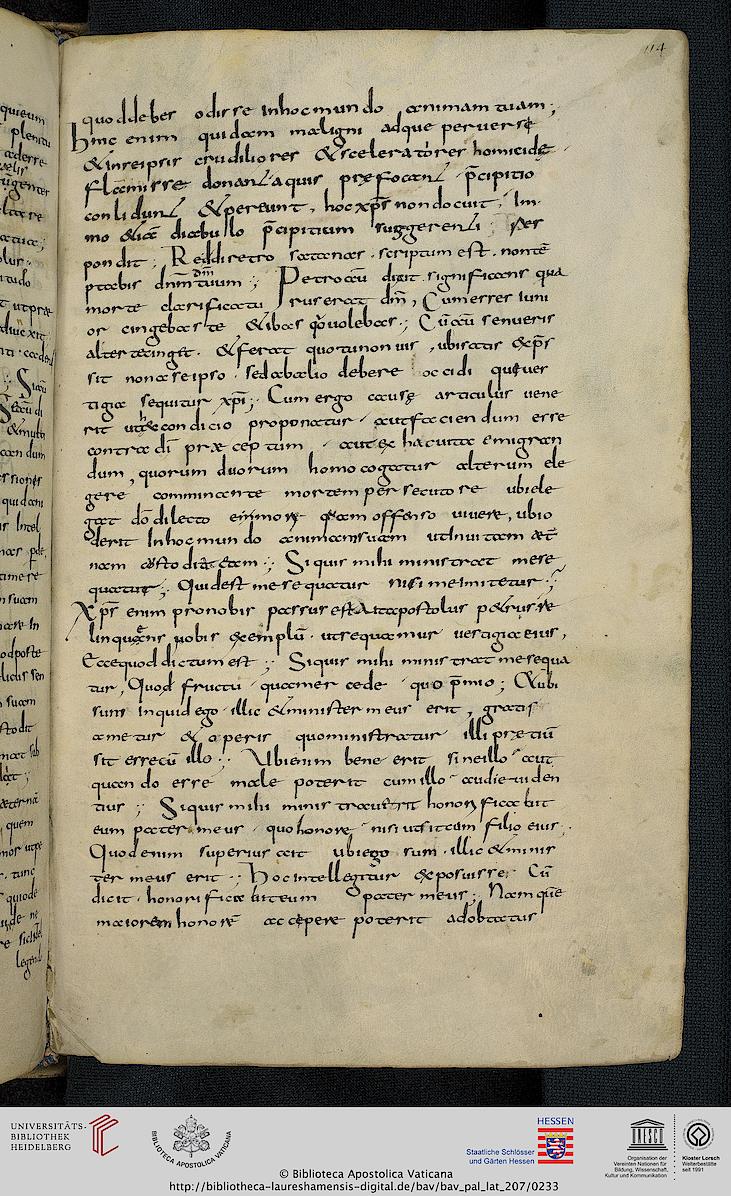 114
quod debes odisse in hoc mundo animam tuam;
hinc enim quidam maligni adque perversę
& in se ipsis crudiliores & sceleratores homicidę
flammis se donant aquis prefocant p̄cipitio
conlidunt & pereunt, hoc xp̄s non docuit; Im
mo & iam diabullo p̄cipitium suggerenti res
pondit; Redi retro satanas. scriptum est. non tē
ptabis dn̄m dm̄ tuum; Petro cū dixit significans qua
morte clarificatu rus erat dm̄, Cum esses iuni
or cingebas te & ibas quo volebas; Cū aū senueris
alter te cinget. & ferat quo tu non uis, ubi satis & xp̄s
sit non a se ipso. sed ab alio debere occidi qui ves
tigia sequitur xp̄i; Cum ergo causę articulus uene
rit ut hęc condicio proponatur. aut faciendum esse
contra dī præceptum. aut ex hac uita emigran
dum, quorum duorum homo cogatur alterum ele
gere comminante mortem persecutore ubi ele
gat dō dilecto emori quam offenso uiuere, ubi o
derit In hoc mundo animam suam ut In uitam aet̄
nam custodiat eam; Si quis mihi ministrat me se
quatur; Quid est me sequatur nisi me imitetur;
Xp̄s enim pro nobis passus est Ait apostolus p&rus re
linquens uobis exemplū. ut sequamur uestigia eius,
Ecce quod dictum est; Si quis mihi ministrat me sequa
tur, Quod fructu. qua mercede. quo p̄mio; & ubi
sum inquid ego. illic & minister meus erit, gratis
ametur & operis quo ministratur illi prætiū
sit esse cū illo; Ubi enim bene erit sine illo aut
quando esse male poterit cum illo audi euiden
tius; Si quis mihi ministrauerit honorificabit
eum pater meus. quo honore nisi ut sit cum filio eius;
Quod enim superius ait ubi ego sum. illic & minis
ter meus erit; Hoc intellegitur exposuisse Cū
dicit. honorificabit eum pater meus; Nam quē
maiorem honorē accepere poterit adobtatus
UNIVERSITÄTS-
BIBLIOTHEK
HEIDELBERG
BIBLIOTECA APOSTOLICA VATICANA
HESSEN
Staatliche Schlösser
und Gärten Hessen
UNESCO
Organisation der
Vereinten Nationen für
Bildung, Wissenschaft,
Kultur und Kommunikation
Kloster Lorsch
Welterbestätte
seit 1991
© Biblioteca Apostolica Vaticana
http://bibliotheca-laureshamensis-digital.de/bav/bav_pal_lat_207/0233